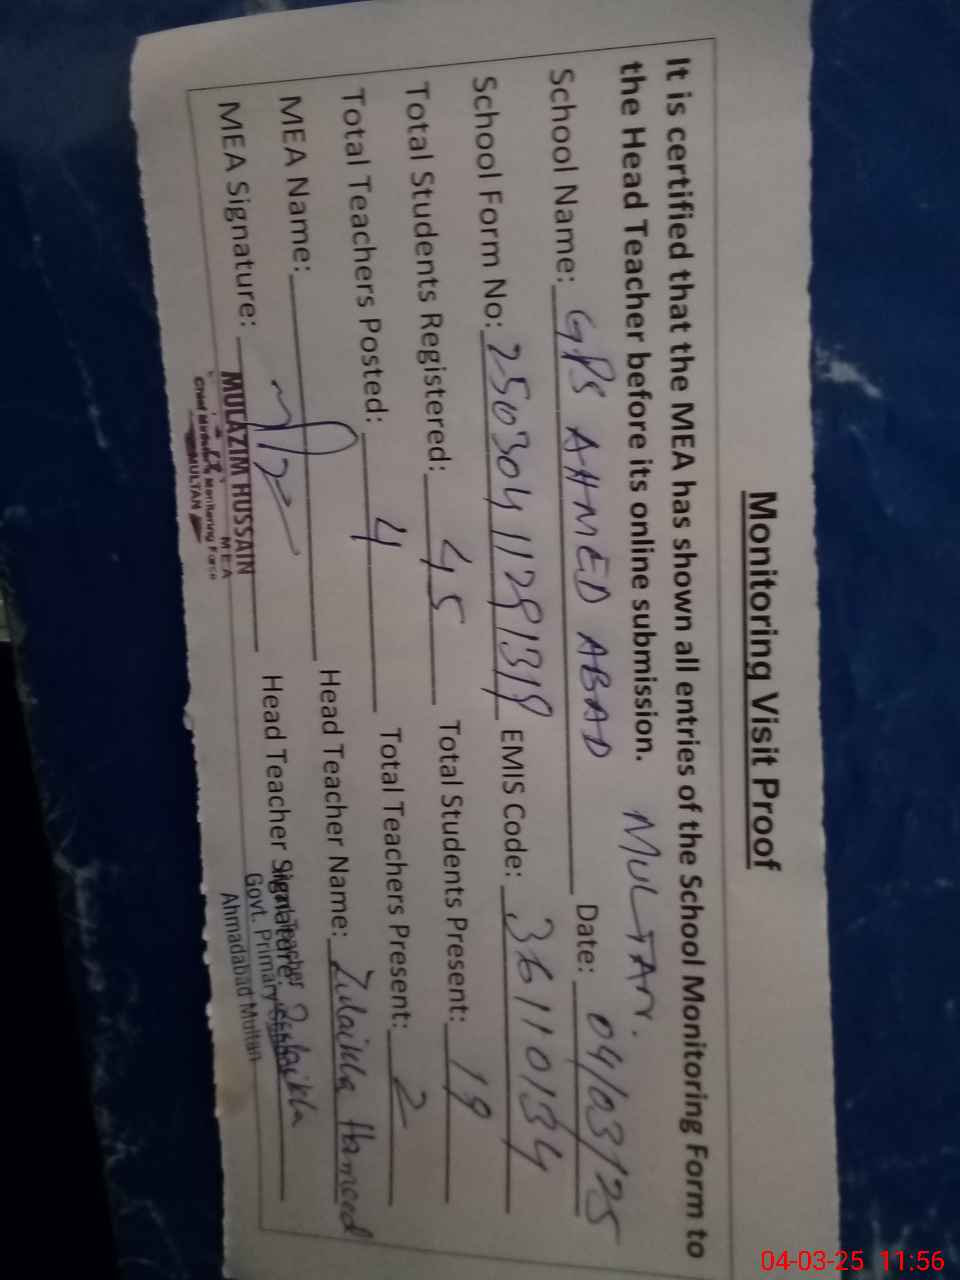 Monitoring Visit Proof
It is certified that the MEA has shown all entries of the School Monitoring Form to
the Head Teacher before its online submission. MULTAN.
School Name: GPS AHMED ABAD Date: 04/03/25
School Form No: 25030411291319 EMIS Code: 36110134
Total Students Registered: 45 Total Students Present: 19
Total Teachers Posted: 4 Total Teachers Present: 2
MEA Name: Head Teacher Name: Zulaikha Hameed
MEA Signature: Head Teacher Signature: Zulaikha
MULAZIM HUSSAIN
MEA
Chief Minister's Monitoring Force
MULTAN
Head Teacher
Govt. Primary School
Ahmadabad Multan
04-03-25 11:56